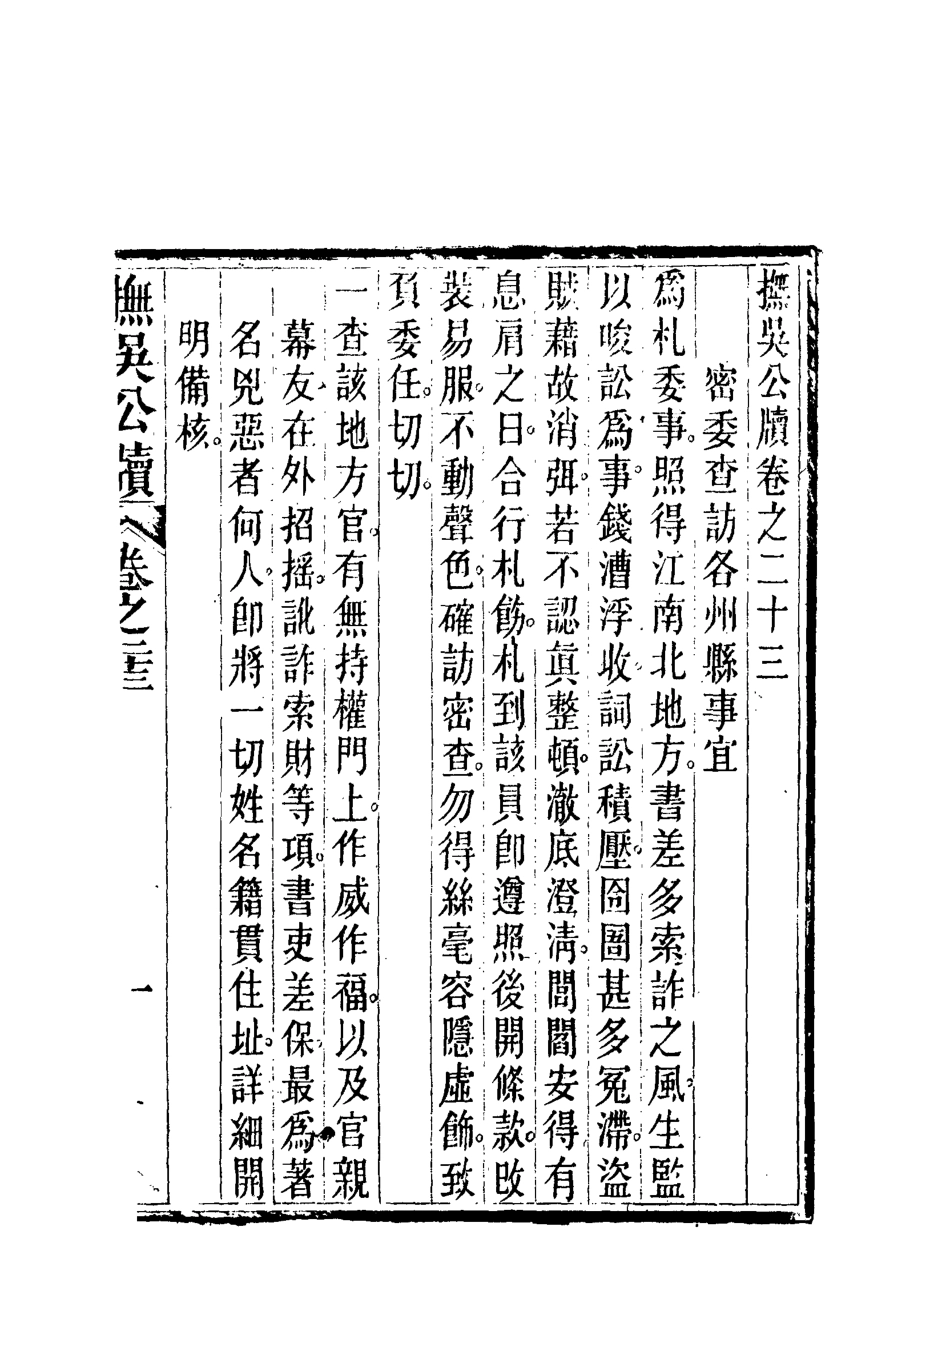 撫吳公牘卷之二十三
密委查訪各州縣事宜
爲札委事。照得江南北地方。書差多索詐之風。生監
以唆訟爲事。錢漕浮收。詞訟積壓。囹圄甚多冤滯。盜
賊藉故消弭。若不認眞整頓。澈底澄淸。閭閻安得有
息肩之日。合行札飭。札到該員卽遵照後開條款。改
裝易服。不動聲色。確訪密查。勿得絲毫容隱虛飾。致
負委任。切切。
一查該地方官。有無持權門上。作威作福。以及官親
幕友在外招搖。訛詐索財等項。書吏差保。最爲著
名兇惡者何人。卽將一切姓名籍貫住址。詳細開
明備核。
撫吳公牘 卷之二十三
一